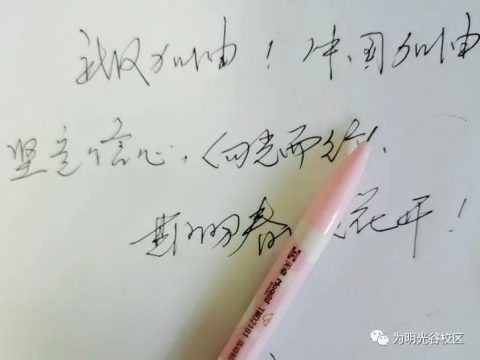 武汉加油！中国加油
坚定信心，向光而行，
期盼春 花开！
为明光谷校区